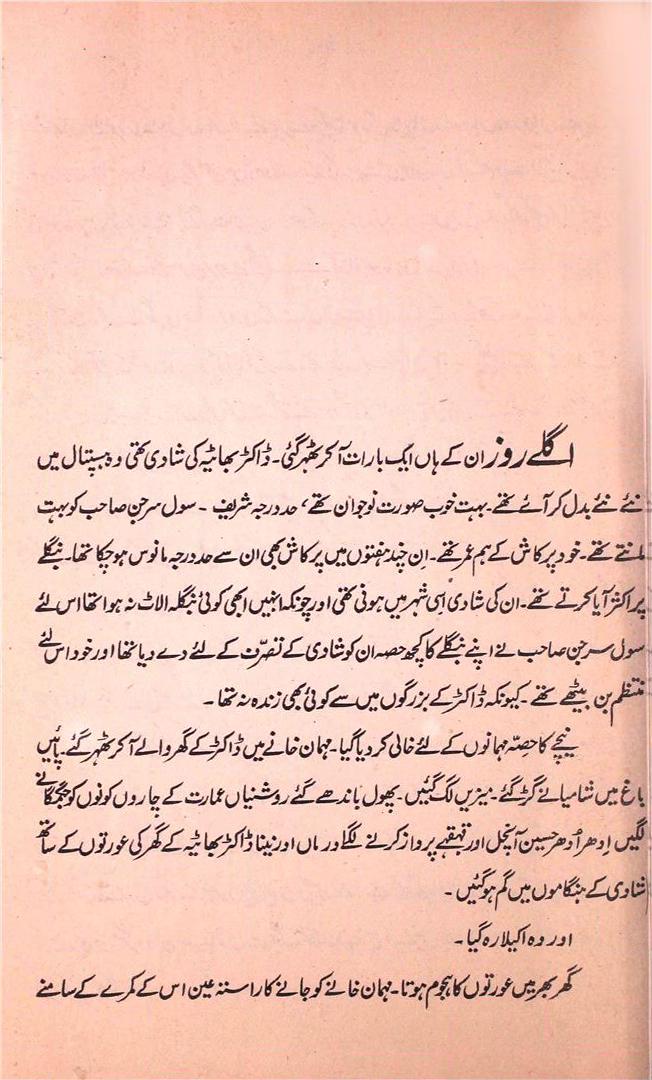 اگلے روز ان کے ہاں ایک بارات آ کر ٹھہر گئی۔ ڈاکٹر بھاٹیہ کی شادی تھی وہ ہسپتال میں
نئے نئے بدل کر آئے تھے۔ بہت خوب صورت نوجوان تھے، حد درجہ شریف ۔ سول سرجن صاحب کو بہت
مانتے تھے۔ خود پرکاش کے ہم عمر تھے۔ اِن چند ہفتوں میں پرکاش بھی ان سے حد درجہ مانوس ہو چکا تھا۔ بنگلے
پر اکثر آیا کرتے تھے۔ ان کی شادی اسی شہر میں ہونی تھی اور چونکہ انہیں ابھی کوئی بنگلہ الاٹ نہ ہوا تھا اس لئے
سول سرجن صاحب نے اپنے بنگلے کا کچھ حصہ ان کو شادی کے تصرّف کے لئے دے دیا تھا اور خود اس لئے
منتظم بن بیٹھے تھے۔ کیونکہ ڈاکٹر کے بزرگوں میں سے کوئی بھی زندہ نہ تھا ۔
نیچے کا حصّہ مہمانوں کے لئے خالی کر دیا گیا۔ مہمان خانے میں ڈاکٹر کے گھر والے آ کر ٹھہر گئے۔ پائیں
باغ میں شامیانے گڑ گئے۔ میزیں لگ گئیں۔ پھول باندھے گئے روشنیاں عمارت کے چاروں کونوں کو جگمگانے
لگیں اِدھر اُدھر حسین آنچل اور قہقہے پرواز کرنے لگے اور ماں اور نینا ڈاکٹر بھاٹیہ کے گھر کی عورتوں کے ساتھ
شادی کے ہنگاموں میں گم ہو گئیں ۔
اور وہ اکیلا رہ گیا ۔
گھر بھر میں عورتوں کا ہجوم ہوتا۔ مہمان خانے کو جانے کا راستہ عین اس کے کمرے کے سامنے